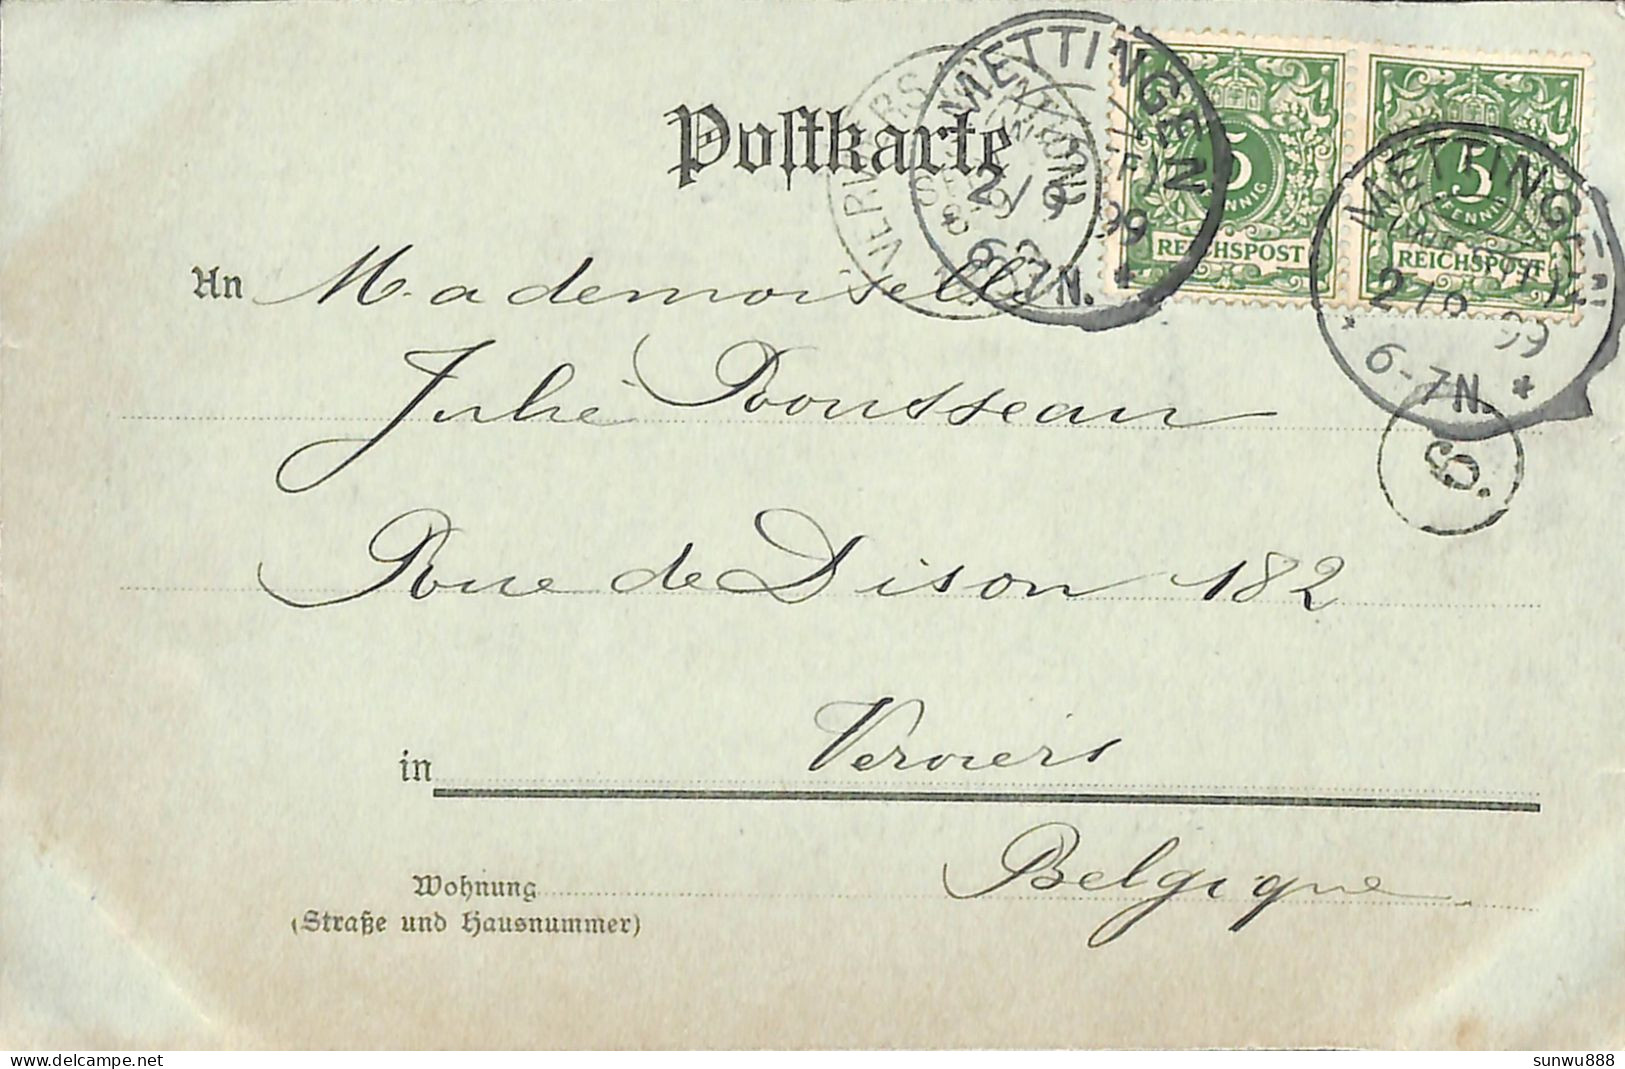 Postkarte
METTINGEN
(WESTF)
2/9 99
6-7N. *
VERVIERS
5
PFENNIG
REICHSPOST
5
PFENNIG
REICHSPOST
METTINGEN
(WESTF)
2/9 99
* 6-7N. *
6.
An Mademoiselle
Julie Rousseau
Rue de Dison 182
in Verviers
Belgique
Wohnung
(Straße und Hausnummer)
sunwu888